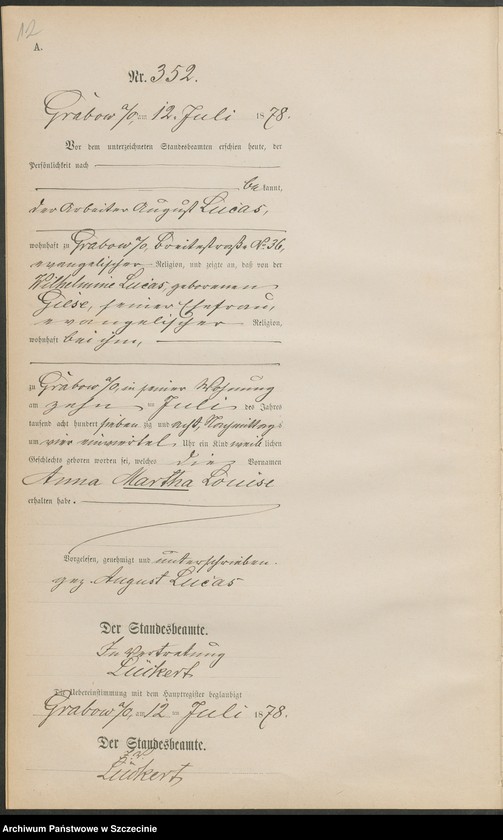 12
A.
Nr. 352.
Grabow a/O, am 12. Juli 1878.
Vor dem unterzeichneten Standesbeamten erschien heute, der
Persönlichkeit nach
be kannt,
der Arbeiter August Lucas,
wohnhaft zu Grabow a/O, Breitestraße No 36,
evangelischer Religion, und zeigte an, daß von der
Wilhelmine Lucas, geborenen
Giese, seiner Ehefrau,
evangelischer Religion,
wohnhaft bei ihm,
zu Grabow a/O, in seiner Wohnung
am zehn ten Juli des Jahres
tausend acht hundert sieben zig und acht, Nachmittags
um vier einviertel Uhr ein Kind weib lichen
Geschlechts geboren worden sei, welches die Vornamen
Anna Martha Louise
erhalten habe.
Vorgelesen, genehmigt und unterschrieben.
gez. August Lucas
Der Standesbeamte.
In Vertretung
Lückert
Die Uebereinstimmung mit dem Hauptregister beglaubigt
Grabow a/O, am 12 ten Juli 1878.
Der Standesbeamte.
Lückert
Archiwum Państwowe w Szczecinie